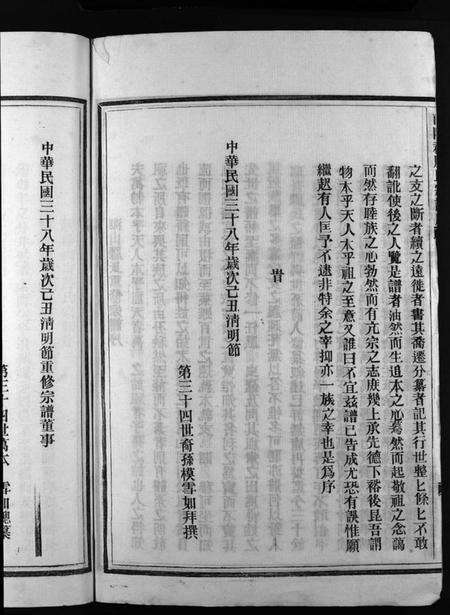 之支之斷者續之遠徙者書其喬遷分纂者記其行世整匕條匕不敢
翻訛使後之人覽是譜者油然而生追本之心藹然而起敬祖之念藹
然而存睦族之心勃然而有亢宗之志庶幾上承先德下裕後昆吾謂
物本乎天人本乎祖之至意又誰曰不宜兹譜已告成尤恐有誤惟願
繼起有人匡予不逮非特余之幸抑亦一族之幸也是爲序
旹
中華民國三十八年歲次己丑清明節
第三十四世裔孫模雪如拜撰
中華民國三十八年歲次己丑清明節重修宗譜董事
第三十四世
雪如總纂